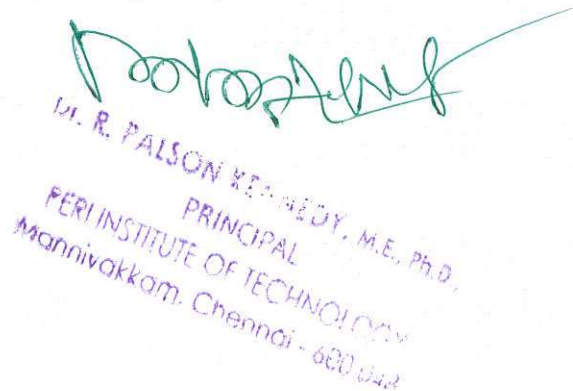 Dr. R. PALSON KENNEDY, M.E., Ph.D.,
PRINCIPAL
PERI INSTITUTE OF TECHNOLOGY
Mannivakkam, Chennai - 600 048